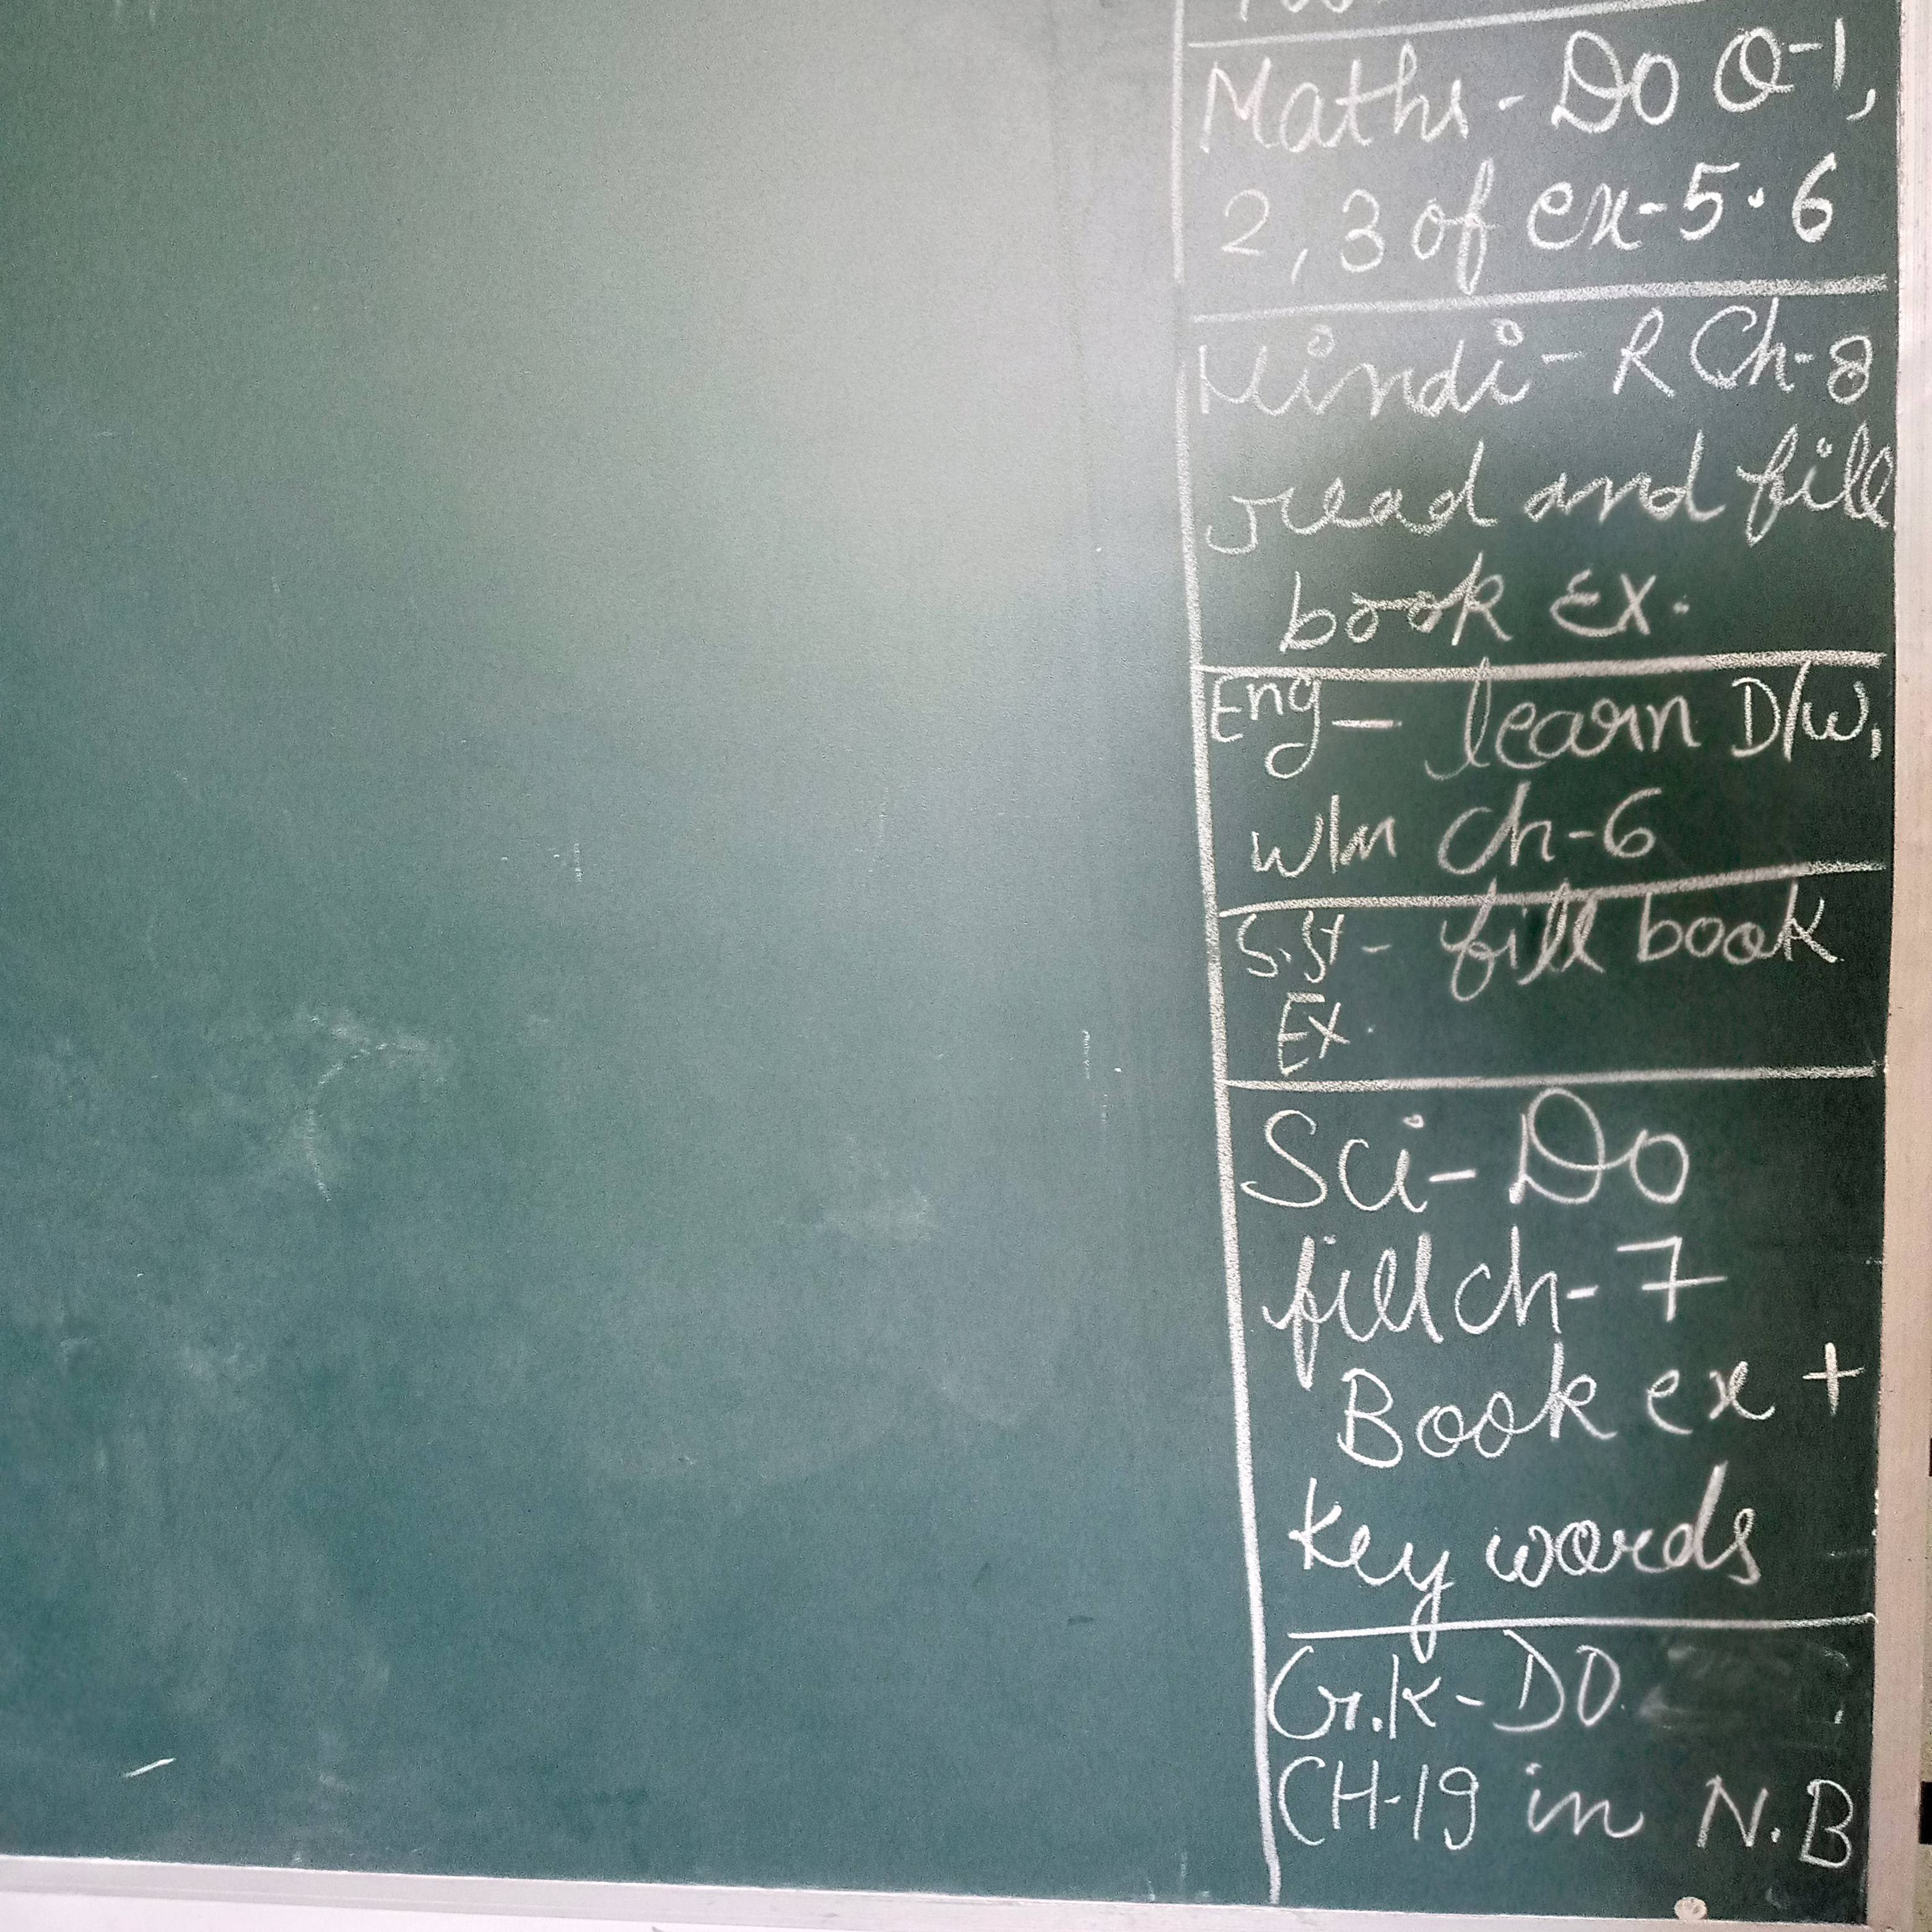 Maths - Do Q-1,
2, 3 of ex-5.6
Hindi - R Ch-8
read and fill
book Ex.
Eng - learn D/W,
W/M Ch-6
S.St - fill book
Ex.
Sci - Do
fill ch-7
Book ex +
key words
G.K - DO
CH-19 in N.B